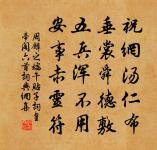 祝網湯仁布
垂裳舜德敷
五兵渾不用
安事赤靈符
周麟之端午帖子詞皇
帝閣六首詞典網